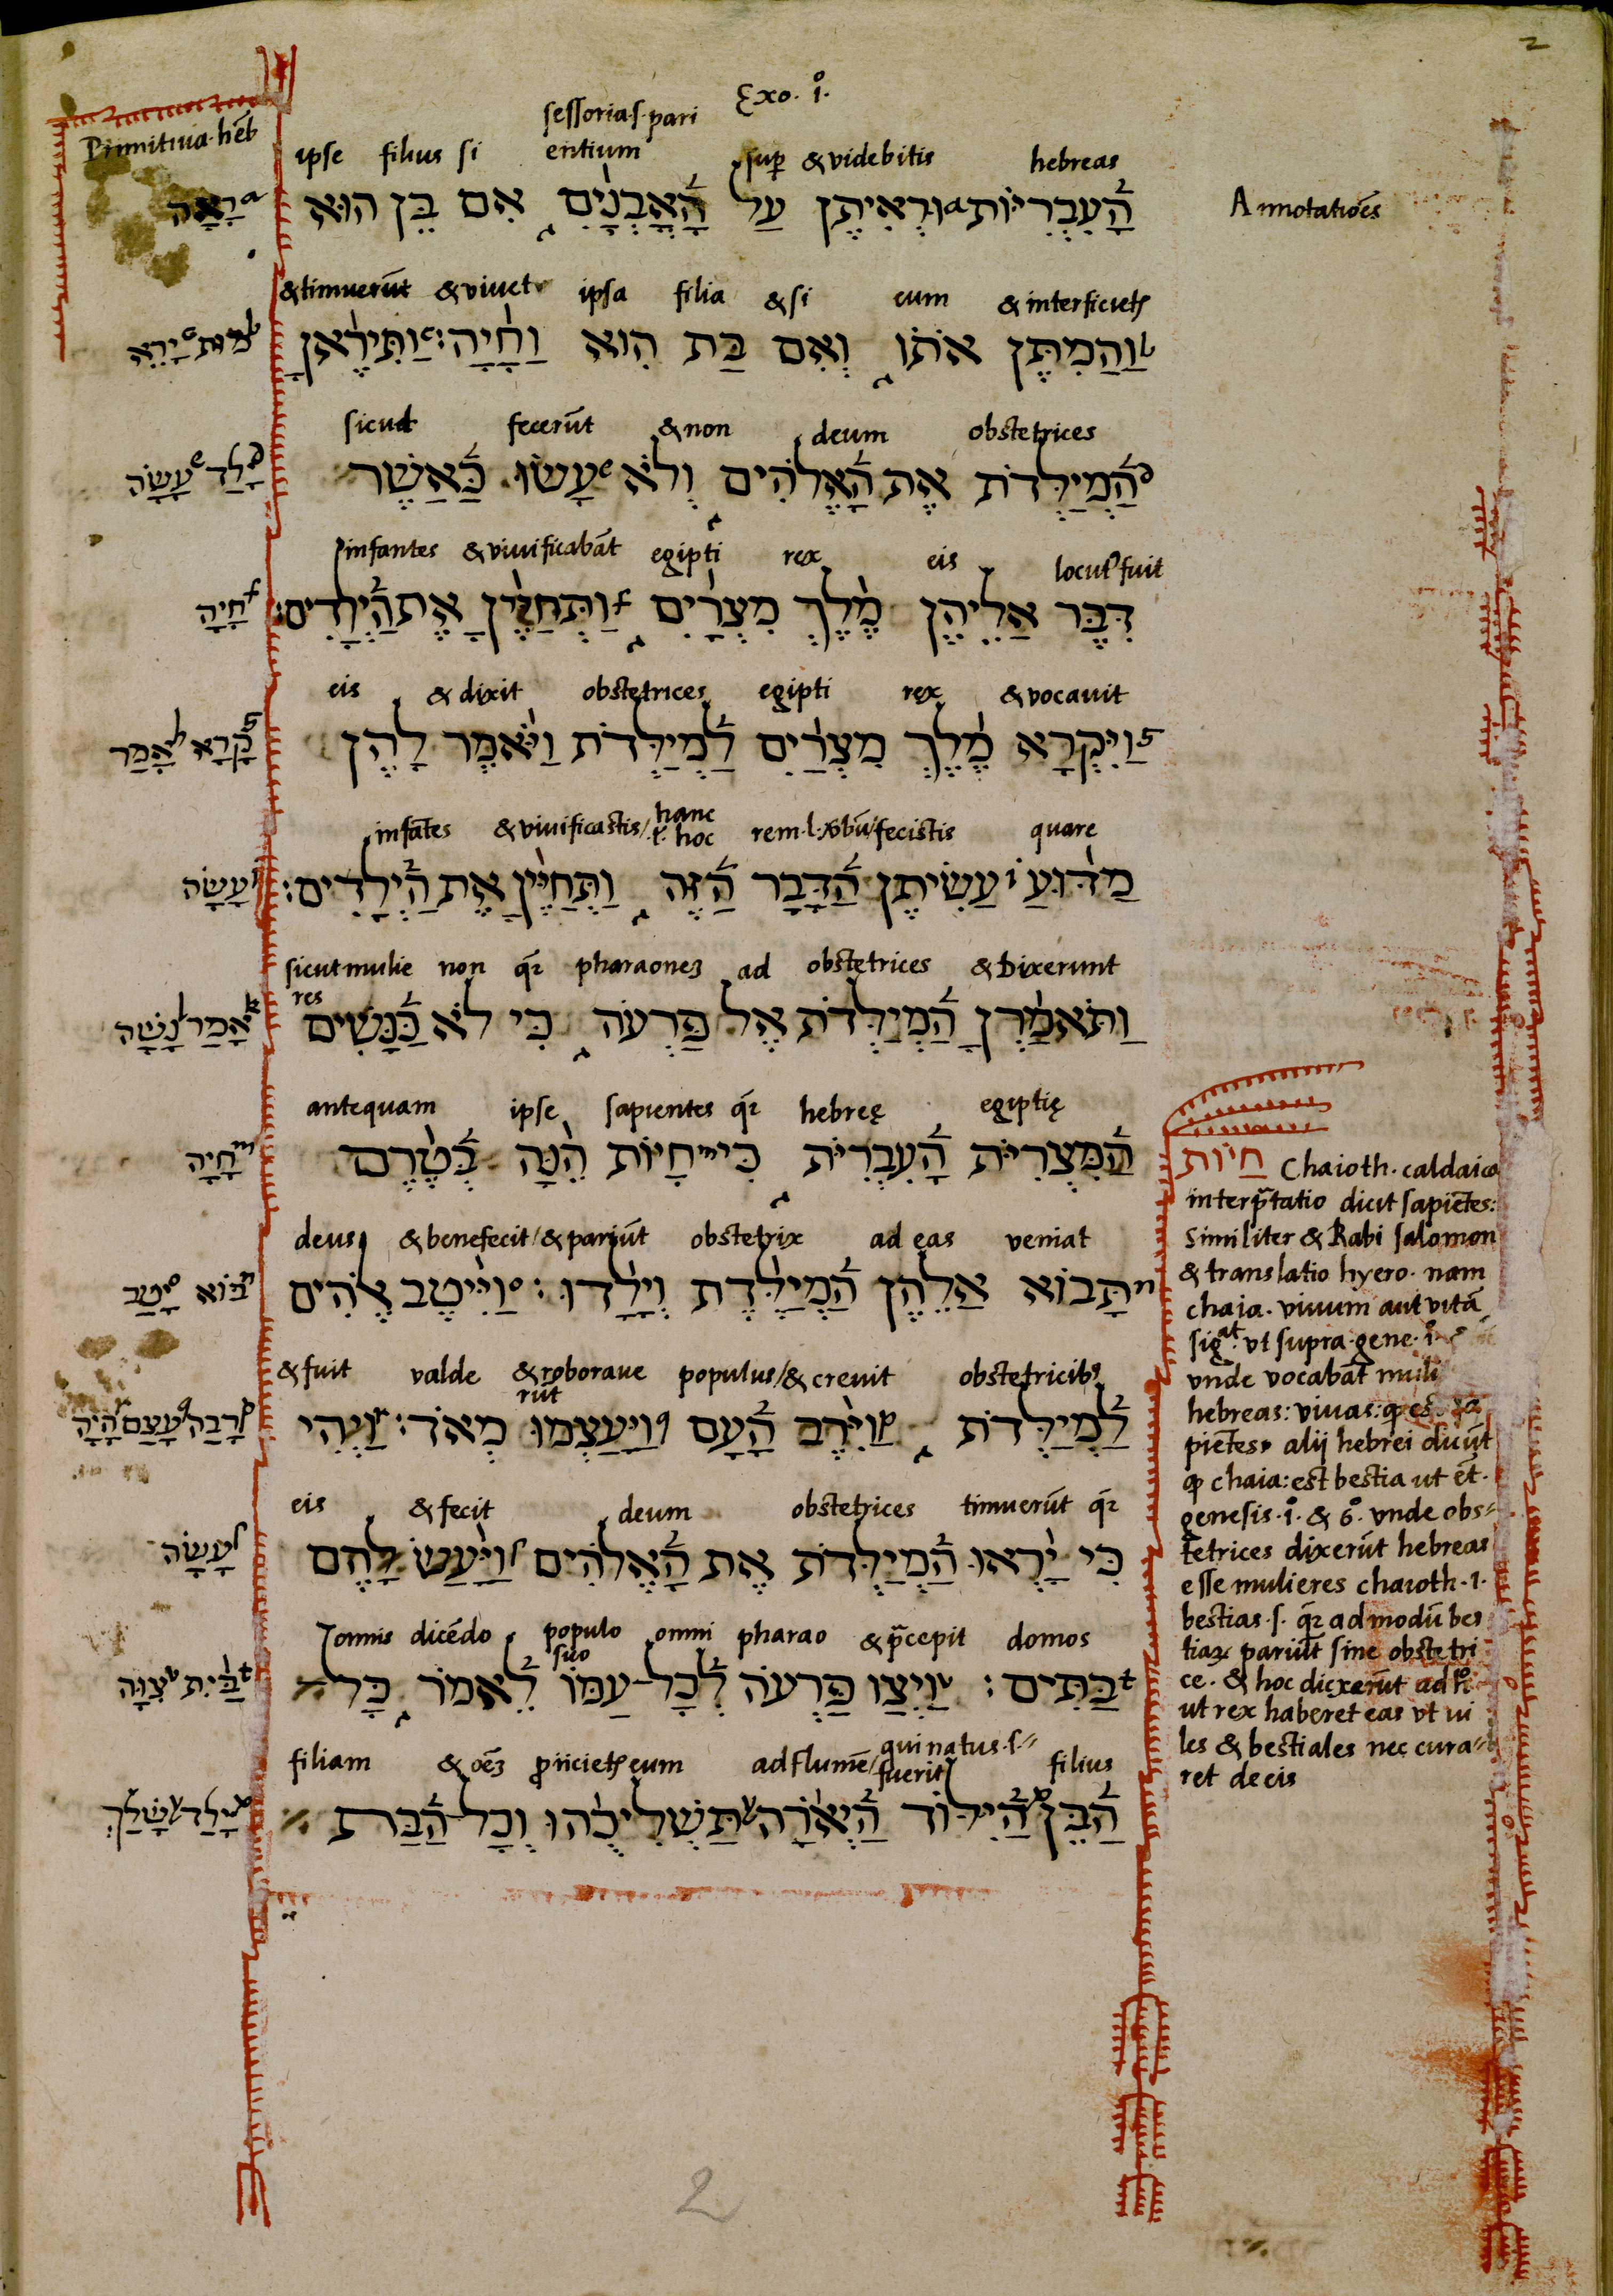 2
Exo. i͛.
Primitiua hēb
sessoria.s.pari
ipse filius si entium suꝑ &videbitis hebreas
הָעִבְרִיּוֹת ᵃוּרְאִיתֶן עַל הָאָבְנָיִם אִם בֵּן הוּא
ᵃרָאָה
Annotatiōes
&timuerūt &viuet ipsa filia &si eum &interficietꝭ
ᵇוַהֲמִתֶּן אֹתוֹ וְאִם בַּת הִוא וָחָיָה: ᶜוַתִּירֶאןָ
ᵇמוּת ᶜיָרֵא
sicut fecerūt &non deum obstetrices
ᵈהַמְיַלְּדֹת אֶת הָאֱלֹהִים וְלֹא ᵉעָשׂוּ כַּאֲשֶׁר
ᵈיָלַד ᵉעָשָׂה
infantes &viuificabāt egipti rex eis locutꝰfuit
דִּבֶּר אֲלֵיהֶן מֶלֶךְ מִצְרָיִם ᶠוַתְּחַיֶּיןָ אֶת הַיְלָדִים:
ᶠחָיָה
eis &dixit obstetrices egipti rex &vocauit
ᵍוַיִּקְרָא מֶלֶךְ מִצְרַיִם לַמְיַלְּדֹת וַיֹּאמֶר לָהֶן
ᵍקָרָא ʰאָמַר
infātes &viuificastis/ hanc
ł. hoc rem.l.v̄bū/fecistis quare
מַדּוּעַ ⁱעֲשִׂיתֶן הַדָּבָר הַזֶּה וַתְּחַיֶּיןָ אֶת הַיְלָדִים:
ⁱעָשָׂה
sicutmulie non qꝛ̄ pharaoneꝫ ad obstetrices &dixerunt
res
וַתֹּאמַרְןָ הַמְיַלְּדֹת אֶל פַּרְעֹה כִּי לֹא כַנָּשִׁים
ᵏאָמַר ˡנָשָׁה
antequam ipse sapientes qꝛ̄ hebreę egiptię
הַמִּצְרִיֹּת הָעִבְרִיֹּת כִּי ᵐחָיוֹת הֵנָּה בְּטֶרֶם
ᵐחָיָה
deus &benefecit/&pariūt obstetrix ad eas veniat
ⁿתָּבוֹא אֲלֵהֶן הַמְיַלֶּדֶת וְיָלָדוּ: ᵒוַיֵּיטֶב אֱלֹהִים
ⁿבּוֹא ᵒיָטַב
&fuit valde &roboraue populus/&creuit obstetricibꝰ
rūt
לַמְיַלְּדֹת ᵖוַיִּרֶב הָעָם ᑫוַיַּעַצְמוּ מְאֹד: ʳוַיְהִי
ᵖרָבַה ᑫעָצַם ʳהָיָה
eis &fecit deum obstetrices timuerūt qꝛ̄
כִּי יָרְאוּ הַמְיַלְּדֹת אֶת הָאֱלֹהִים ˢוַיַּעַשׂ לָהֶם
ˢעָשָׂה
omnis dicēdo populo omni pharao &p̄cepit domos
suo
ᵗבָּתִּים: ᵛוַיְצַו פַּרְעֹה לְכָל־עַמּוֹ לֵאמֹר כָּל
ᵗבַּיִת ᵛצָוָּה
filiam &oēꝫ ꝓiicietꝭ eum adflumē/ qui natus.s
fuerit filius
הַבֵּן ˣהַיִּלּוֹד הַיְאֹרָה ʸתַּשְׁלִיכֻהוּ וְכָל־הַבַּת
ˣיָלַד ʸשָׁלַךְ
חַיּוֹת Chaioth.caldaica
interp̄tatio dicit sapiētes:
Similiter & Rabi salomon
& translatio hyero. nam
chaia. viuum aut vitā
sigᵃᵗ. vt supra.gene.i͛.
vnde vocabāt muli
hebreas: viuas:
piētes. alij hebrei dicūt
ꝙ chaia: est bestia ut ēt.
genesis.i͛. & 6͛. vnde obs⸗
tetrices dixerūt hebreas
esse mulieres chaioth.i.
bestias.s. qꝛ̄ admodū bes
tiaꝝ pariūt sine obstetri
ce. & hoc dicxerūt ad
ut rex haberet eas vt vi
les & bestiales nec cura⸗
ret de eis
2